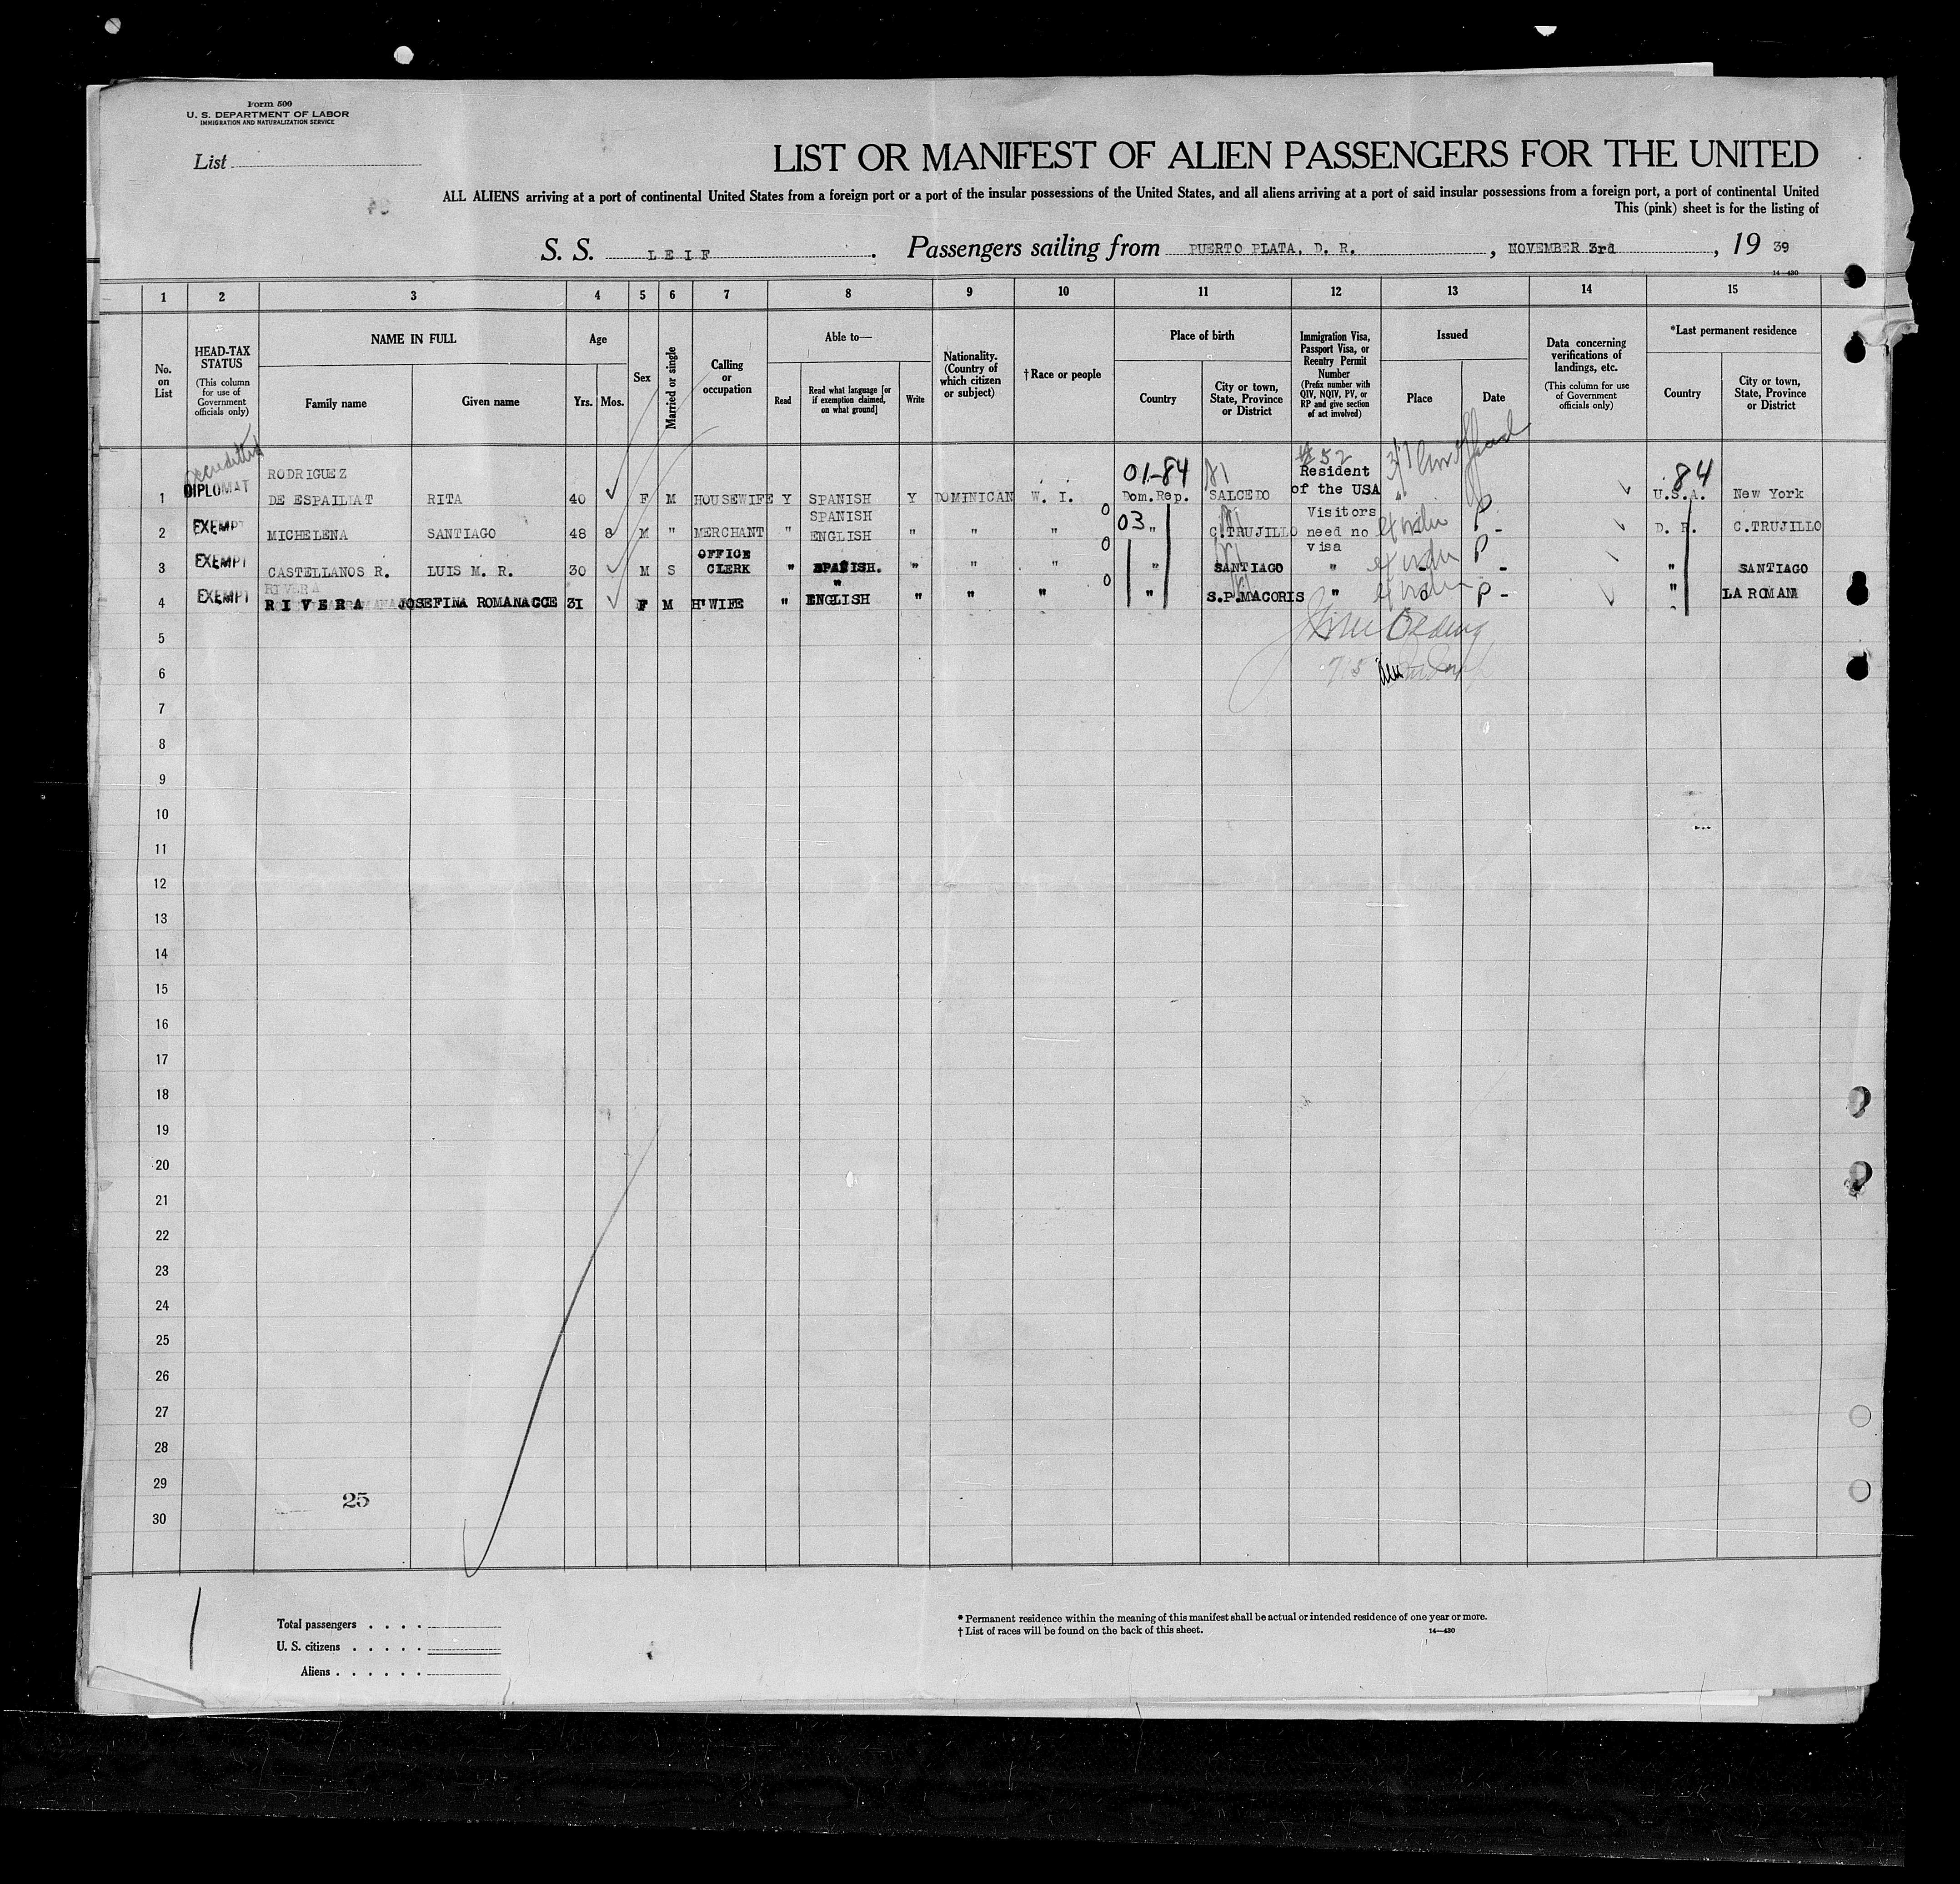 Form 500
U. S. DEPARTMENT OF LABOR
IMMIGRATION AND NATURALIZATION SERVICE
List
LIST OR MANIFEST OF ALIEN PASSENGERS FOR THE UNITED
ALL ALIENS arriving at a port of continental United States from a foreign port or a port of the insular possessions of the United States, and all aliens arriving at a port of said insular possessions from a foreign port, a port of continental United
This (pink) sheet is for the listing of
S. S. LEIF. Passengers sailing from PUERTO PLATA, D. R., NOVEMBER 3rd, 19 39
14—430
1 2 3 4 5 6 7 8 9 10 11 12 13 14 15
No. on List
HEAD-TAX STATUS
(This column for use of Government officials only)
NAME IN FULL
Family name
Given name
Age
Yrs. Mos.
Sex
Married or single
Calling or occupation
Able to—
Read
Read what language [or if exemption claimed, on what ground]
Write
Nationality. (Country of which citizen or subject)
†Race or people
Place of birth
Country
City or town, State, Province or District
Immigration Visa, Passport Visa, or Reentry Permit Number
(Prefix number with QIV, NQIV, PV, or RP and give section of act involved)
Issued
Place
Date
Data concerning verifications of landings, etc.
(This column for use of Government officials only)
*Last permanent residence
Country
City or town, State, Province or District
accredited
RODRIGUEZ 01-84 #52 Resident 84
1 DIPLOMAT DE ESPAILLAT RITA 40 F M HOUSEWIFE Y SPANISH Y DOMINICAN W. I. Dom.Rep. SALCEDO of the USA U.S.A. New York
SPANISH 0 03 Visitors P
2 EXEMPT MICHELENA SANTIAGO 48 8 M " MERCHANT " ENGLISH " " " " C.TRUJILLO need no D. R. C.TRUJILLO
OFFICE 0 visa P
3 EXEMPT CASTELLANOS R. LUIS M. R. 30 M S CLERK " SPANISH. " " " " SANTIAGO " " SANTIAGO
RIVERA " 0
4 EXEMPT RIVERA JOSEFINA ROMANACCE 31 F M H'WIFE " ENGLISH " " " " S.P.MACORIS " P - " LA ROMANA
5
6
7
8
9
10
11
12
13
14
15
16
17
18
19
20
21
22
23
24
25
26
27
28
29
25
30
Total passengers
U. S. citizens
Aliens
* Permanent residence within the meaning of this manifest shall be actual or intended residence of one year or more.
† List of races will be found on the back of this sheet.
14—430